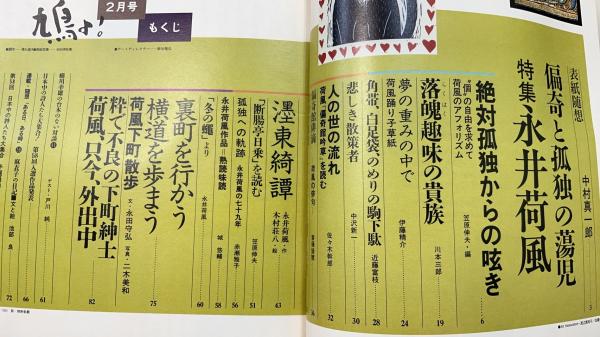 鳩よ!
2月号
もくじ
表紙随想
偏奇と孤独の蕩児
中村真一郎
3
特集 永井荷風
絶対孤独からの呟き
「個」の自由を求めて
荷風のアフォリズム
笠原伸夫・編
6
落魄趣味の貴族
川本三郎
19
夢の重みの中で
荷風踊り子草紙
伊藤精介
24
角帯、白足袋、のめりの駒下駄
近藤富枝
28
悲しき散策者
中沢新一
30
人の世の流れ
荷風『偏奇館吟草』を読む
佐々木幹郎
32
偏奇館俳調
荷風の俳句
濹東綺譚
永井荷風・作
木村荘八・絵
43
「断腸亭日乗」を読む
笠原伸夫
51
孤独への軌跡
永井荷風の七十九年
赤瀬雅子
56
永井荷風作品=熟読味読
城悠輔
58
「冬の蠅」より
永井荷風
60
裏町を行かう
横道を歩まう
荷風下町散歩
文・永田守弘
写真・二木美和
75
粋で不良の下町紳士
荷風、只今、外出中
82
ゲスト・戸川純
61
日本中の詩人たち大集合
第58回入選作品発表
66
72